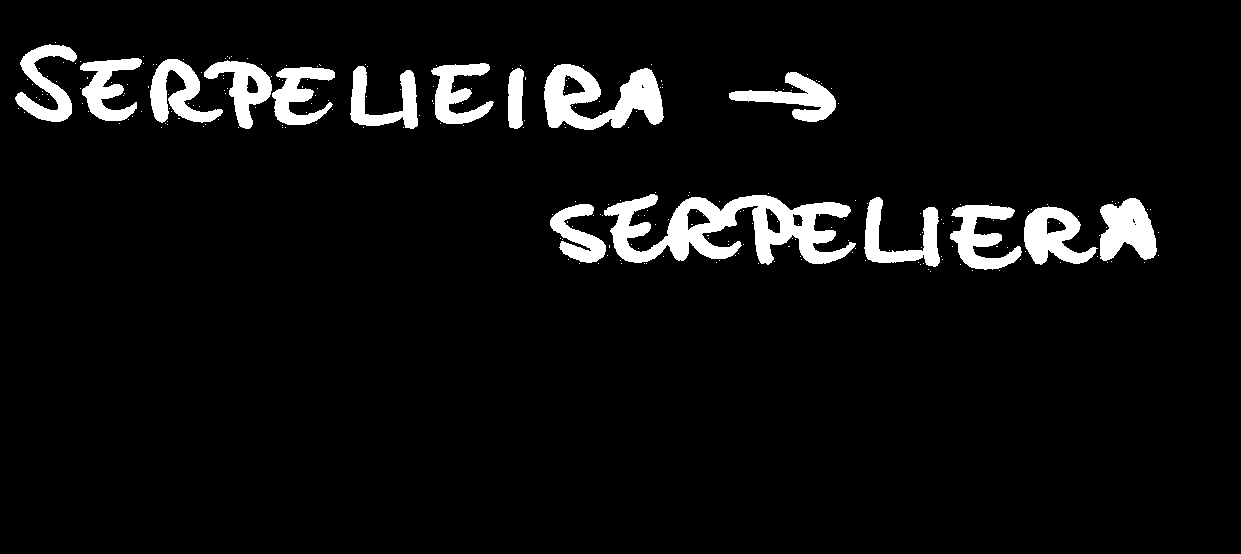 SERPELIEIRA →
SERPELIERA